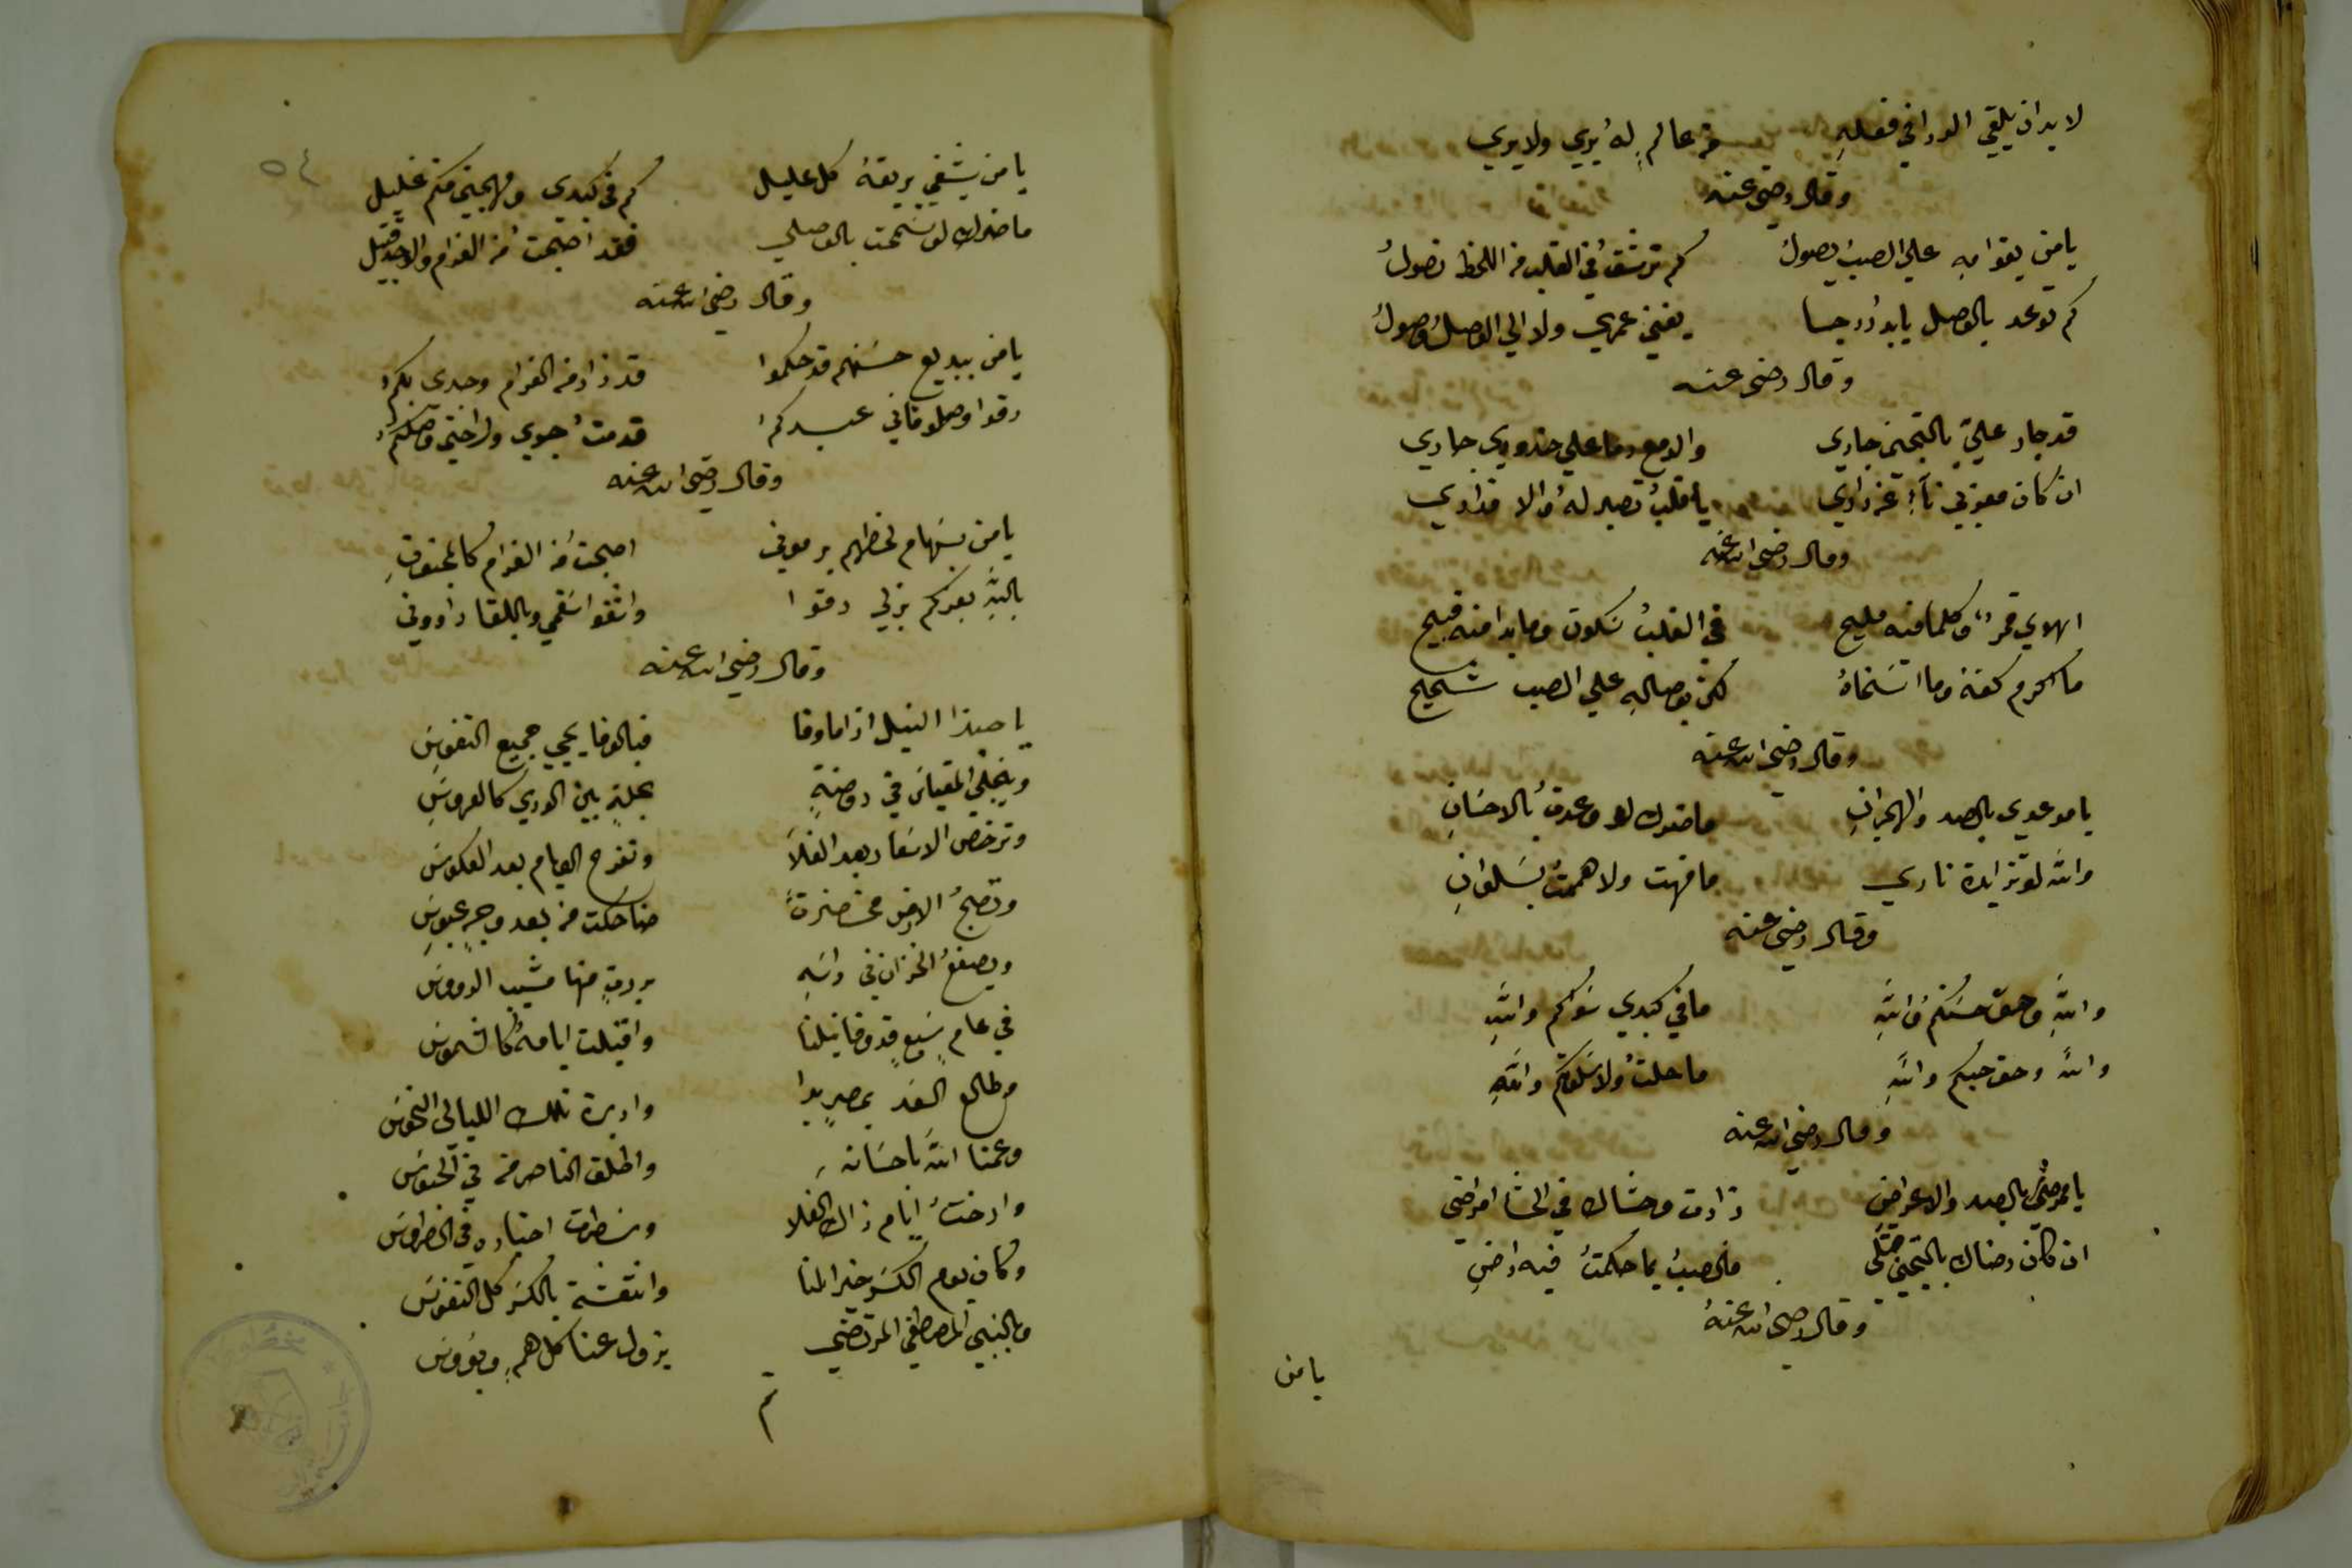 لا بد ان يلقي الورا في فعله من عالمٍ لهُ يري ولا يري
وقال رضي عنه
يامن بقوامه علي الصب يصول كم ترشق في القلب من اللحظ نصولُ
كم توعد بالوصل يا بدر دجا يفني عمري ولا الي الوصل وصولُ
وقال رضي عنه
قد جار عليّ بالتجني جاري والدمع دما علي خدودي جاري
ان كان معذبي نآء عن داري يا قلبُ تصبر لهُ والا فداري
وقال رضي الله عنه
اهوي قمرٌ وكلما فيه مليح في القلبُ سكون وما بدا منه قبيح
ما اكرم كفه وما اسخاهُ لكن بوصالهِ علي الصب شحيح
وقال رضي الله عنه
يا موعدي بالصد والهجرانِ ما ضرك لو وعدت بالاحسانِ
والله لو تزايدة ناري ما فهت ولا هممتُ بسلوانِ
وقال رضي عنه
واللهِ وحق حسنكم واللهِ ما في كبدي سواكم واللهِ
واللهِ وحق حبكم واللهِ ما حلتُ ولا سلوتكم واللهِ
وقال رضي الله عنه
يا ممرضي بالصد والاعراضِ زادت وحشاك في الحشا امراضي
ان كان رضاك بالتجني قتلي فالصبُ بما حكمتُ فيه راضِ
وقال رضي الله عنهُ
يامن
٥٤
يامن يشفي بريقه كل عليل كم في كبدي ومهجتي منكم غليل
ما ضرك لو سمحت بالوصلي فقد اصبحت من الغرام والوجد قتيل
وقال رضي الله عنه
يامن ببديع حسنهم قد حكموا قد زاد من الغرام وجدي بكم
رقوا وصلوا فاني عبدكم قد مت جوي وراحتي وصلكم
وقال رضي الله عنه
يامن بسهام لحظهم يرموني اصبحت من الغرام كالمجنونِ
باللهِ بعزكم بذلي رقوا واشفوا سقمي وباللقا داووني
وقال رضي الله عنه
يا حبذا النيل اذا ما وفا فبالوفا يحيي جميع النفوسِ
وينجلي المقياس في روضةٍ بحلةٍ بين الوري كالعروسِ
وترخص الاسعار بعد الغلا وتفرح العيام بعد العكوس
وتصبحُ الارض مخضرةً ضاحكت من بعد وجهٍ عبوسِ
ويصفعُ الخزان في راسهِ بردةٍ منها مشيب الروس
في عام سبعٍ قد وفا نيلنا واقبلت ايامهُ كالشموس
وطالع السعد بمصرٍ بدا وادبرة تلك الليالي النحوس
وعمنا الله باحسانه واطلق الناصر من في الحبوس
وارختُ ايام ذاك الغلا وسطرت اخباره في الطروس
وكان يوم الكسر خير المنا وانتعشة بالكسر كل النفوس
وبالنبي المصطفي المرتضي يزول عنا كل همٍ وبوس
تم